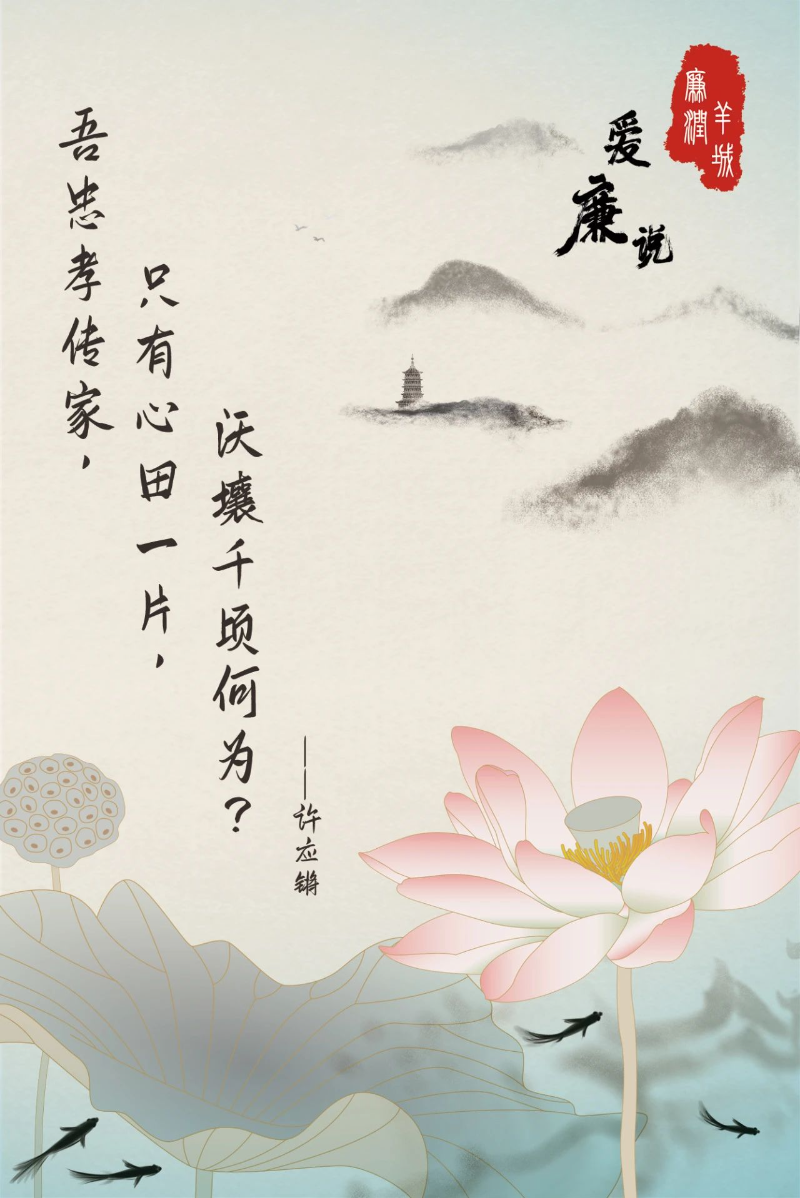 廉潤
羊城
爱廉说
吾忠孝传家，
只有心田一片，
沃壤千顷何为？
——许应锵